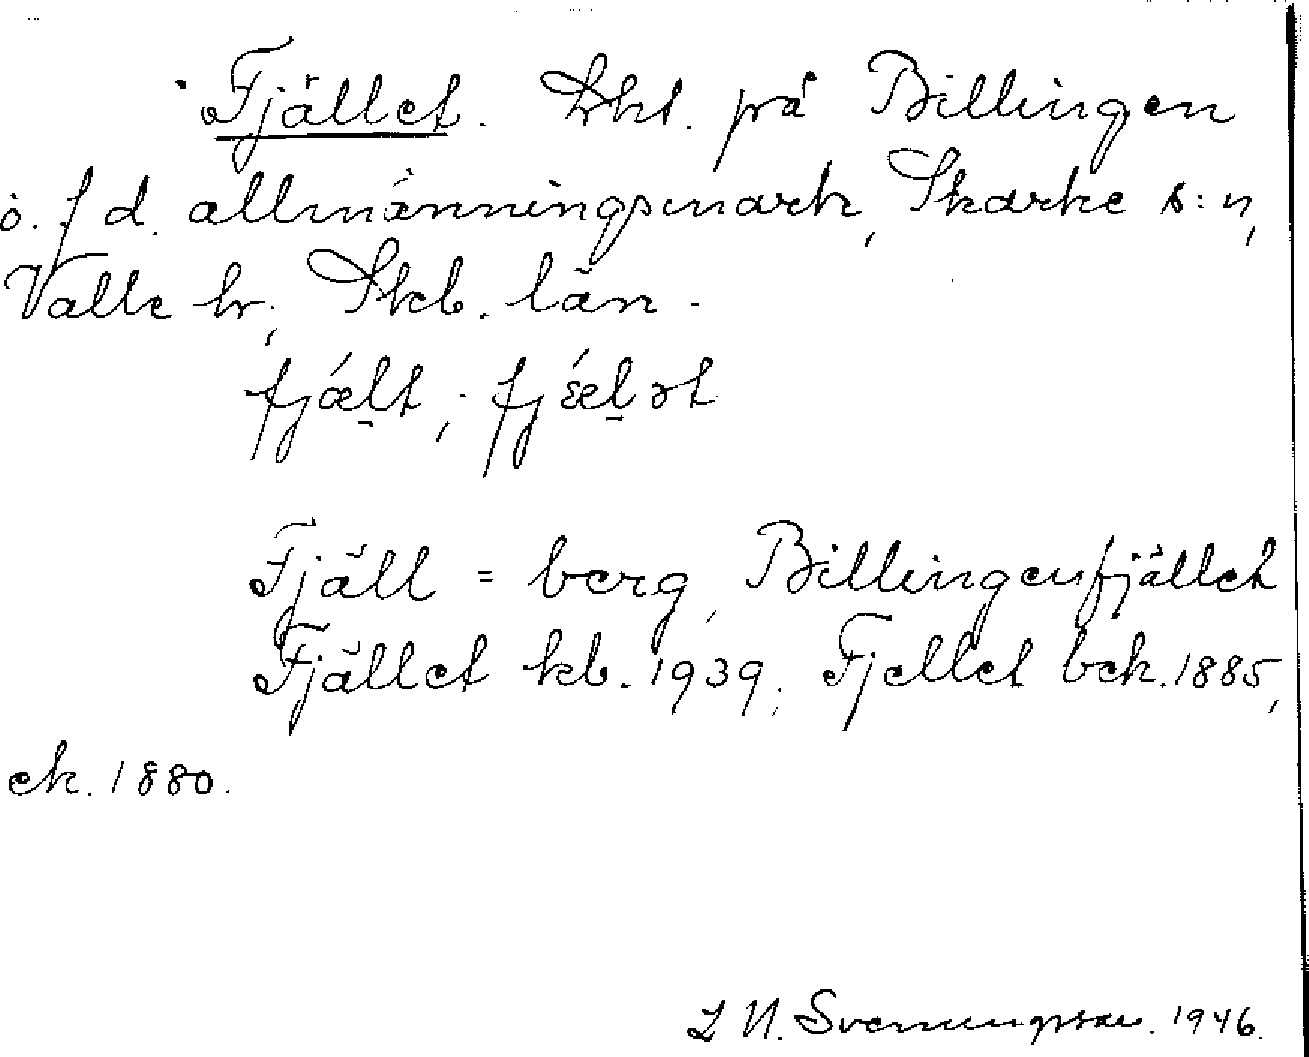 Fjället. Trkt. på Billingen
ö. f d. allmänningsmark, Skarke s:n,
Valle hr, Skb. län.
fjælt, ; fjǽlət
Fjäll = berg, Billingenfjället
Fjället kb. 1939. Fjellet bek. 1885,
ek. 1880.
L N. Svenungsson. 1946.